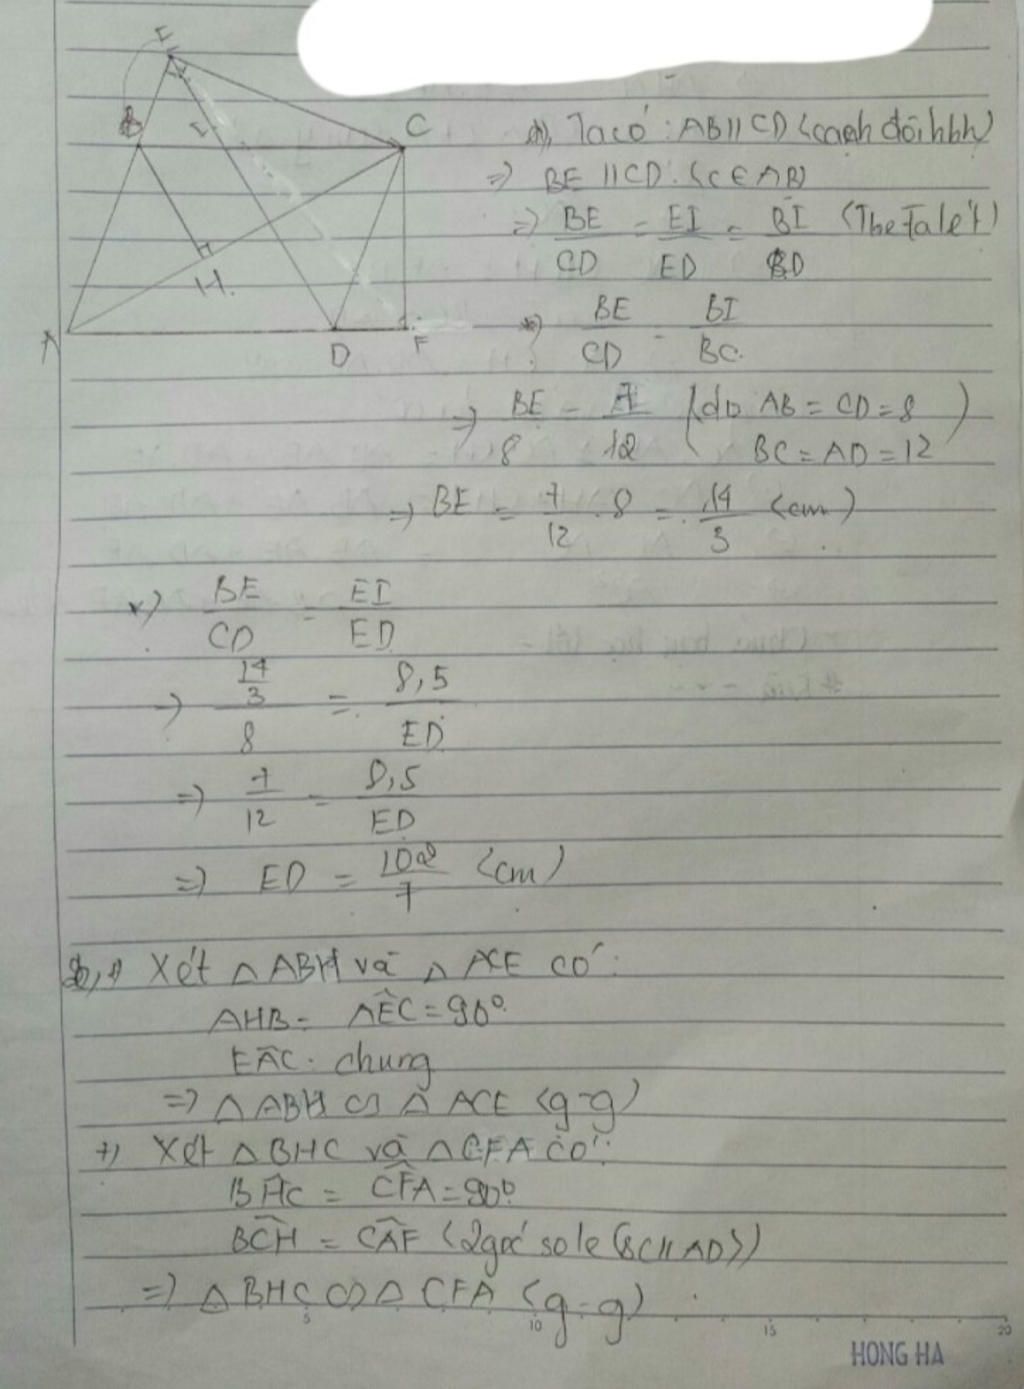 E
B
I
C
H
A
D
F
a), Ta có : AB // CD (cạnh đối hbh)
=> BE // CD. (C ∈ AB)
=> BE/CD = EI/ED = BI/BD (The Talét)
*) BE/CD = BI/BC
=> BE/8 = 7/12 (do AB = CD = 8
BC = AD = 12)
=> BE = 7/12 . 8 = 14/3 (cm)
*) BE/CD = EI/ED
=> 14/3/8 = 8,5/ED
=> 7/12 = 8,5/ED
=> ED = 102/7 (cm)
b, +) Xét △ ABH và △ ACE có :
AHB = AEC = 90°
EAC : chung
=> △ ABH ∽ △ ACE (g-g)
+) Xét △ BHC và △ CFA có :
BHC = CFA = 90°
BCH = CAF (2 góc so le (BC // AD))
=> △ BHC ∽ △ CFA (g-g)
5 10 15 20
HONG HA